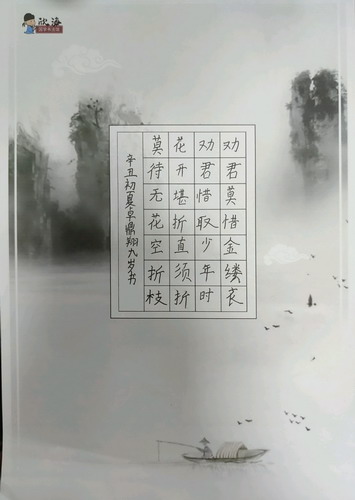 欣海
劝君莫惜金缕衣
劝君惜取少年时
花开堪折直须折
莫待无花空折枝
辛丑初夏卓鼎翔九岁书